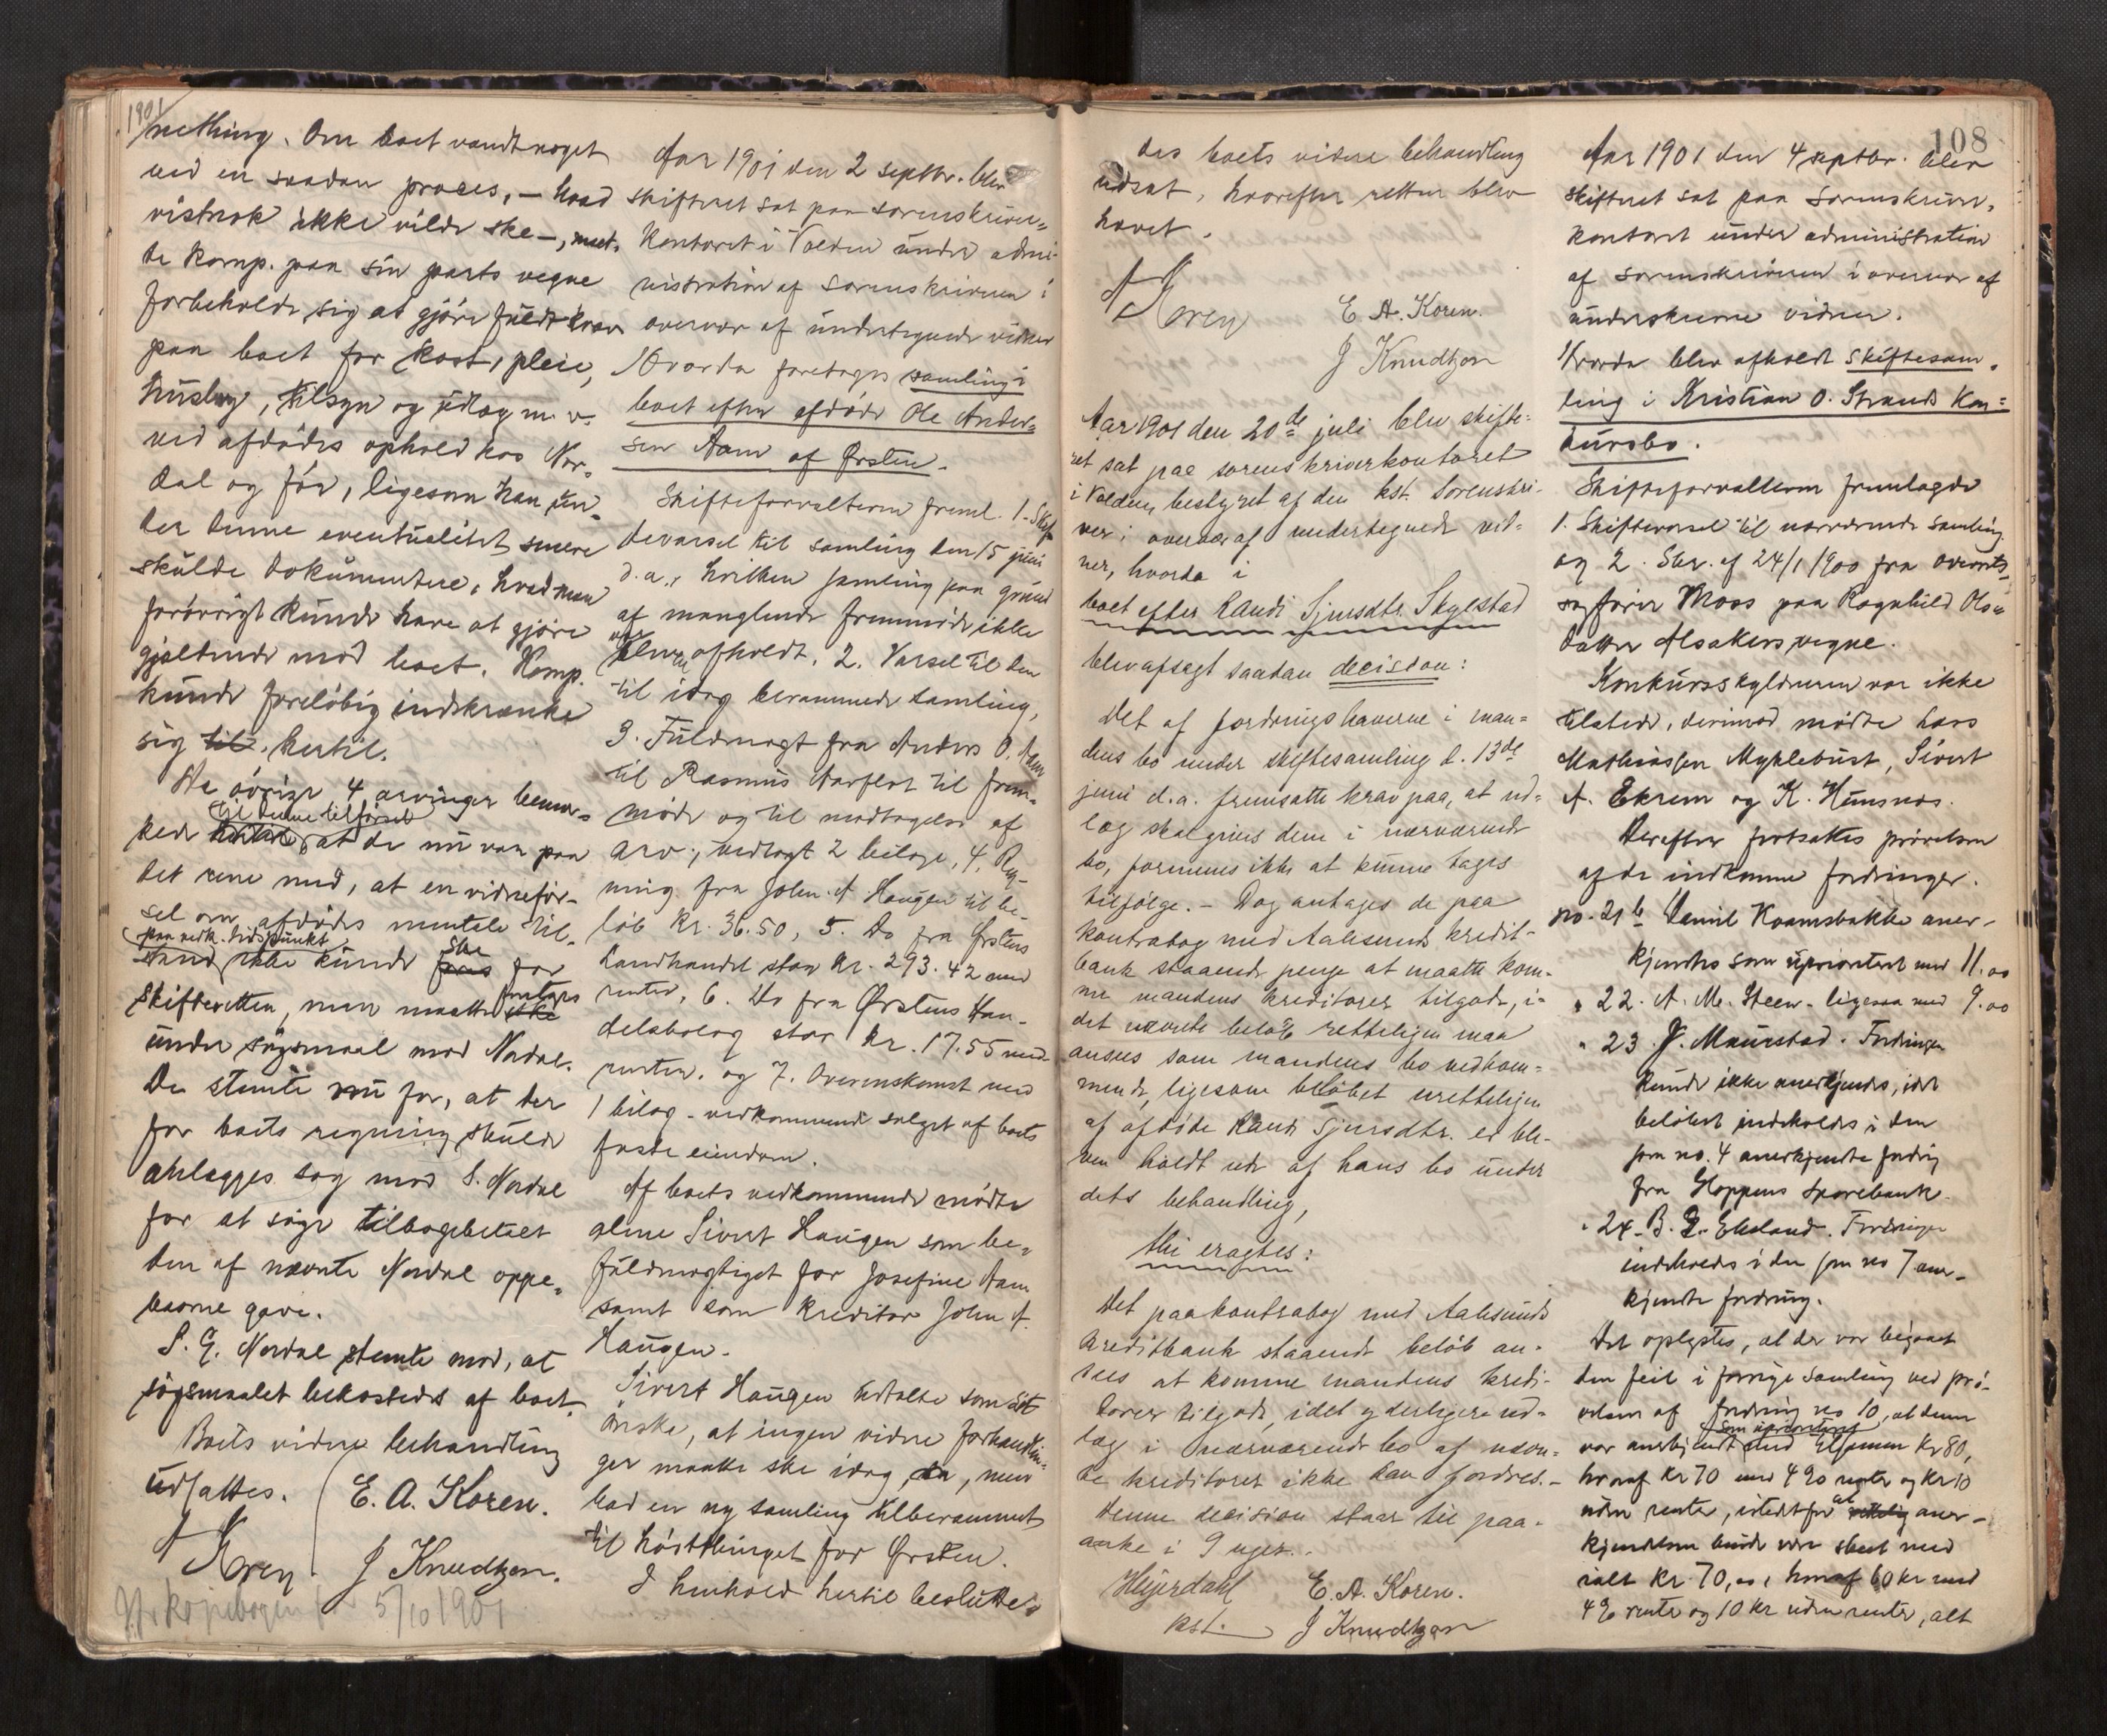 1901
nethinq. Om boet vandt noget
ved en saadan proces, – hvad
vistnok ikke vilde ske –, maat-
te komp. paa sin parts vegne
forbeholde sig at gjöre fuldt krav
paa boet for kost, pleie,
husly, tilsyn og udlæg m. v.
ved afdödes ophold hos Nor-
dal og för, ligesom han un-
der denne eventualitet senere
skulde dokumentere, hvad man
forövrigt kunde have at gjöre
gjældende mod boet. Komp.
kunde foreløbig indskrænke
sig til hertil.
De övrige 4 arvinger bemær-
til denne tilförsel
kede hertil, at de nu var paa
det rene med, at en vidneför-
sel om afdödes mentale til-
paa vedk. tidspunkt
stand ikke kunde ske for
skifteretten, men maatte foretages
under sögsmaal mod Nordal.
De stemte nu for, at der
for boets regning skulde
anlægges sag mod S. Nordal
for at söge tilbagebetalt
den af nævnte Nordal oppe-
baarne gave.
S. G. Nordal stemte mod, at
sögsmaalet bekostedes af boet.
Boets videre behandling
udsattes.
E. A. Koren.
A Koren
J Knudtzon.
kopiebogen 5/10 1901
Aar 1901 den 2 septbr. blev
skifteret sat paa sorenskriver-
kontoret i Volden under admi-
nistration af sorenskriveren i
overvær af undertegnede vidner
Hvorda foretoges samling i
boet efter afdöde OleAnder-
sen Aam af Ørsten.
Skifteforvalteren freml. 1. Skif-
tevarsel til samling den 15 juni
d. a., hvilken samling paa grund
af manglende fremmöde ikke
blev afholdt. 2. Varsel til den
til idag berammede samling,
3. Fuldmagt fra Anders O. Aam
til Rasmus Aarflot til frem-
möde og til modtagelse af
arv, vedlagt 2 bilage, 4. Reg-
ning fra John A. Haugen til be-
löb kr. 36.50, 5. Do fra Ørstens
Landhandel stor kr. 293.42 med
renter, 6. Do fra Ørstens Han-
delsbolag stor kr. 17.55 med
renter, og 7. Overenskomst med
1 bilag – vedkommende salget af boets
faste eiendom.
Af boets vedkommende mödte
alene Sivert Haugen som be-
fuldmægtiget for Josefine Aam
samt som kreditor John A.
Haugen.
Sivert Haugen udtalte som sit
önske, at ingen videre forhandlin-
ger maatte ske idag, men
bad en ny samling tilberammet
til höstthinget for Ørsten.
I henhold hertil beslutte-
108
des boets videre behandling
udsat, hvorefter retten blev
hævet.
A Koren
E. A. Koren.
J Knudtzon
Aar 1901 den 20de juli blev skifte-
ret sat paa sorenskriverkontoret
i Volden, bestyret af den kst. sorenskri-
ver i overvær af undertegnede vid-
ner, hvorda i
boet efter Randi Sjursdtr. Skylstad
blev afsagt saadan decision:
Det af fordringshaverne i man-
dens bo under skiftesamling d. 13de
juni d.a. fremsatte krav paa, at ud-
læg skal gives dem i nærværende
bo, formenes ikke at kunne tages
tilfölge. – Dog antages de paa
kontrabog med Aalesunds kredit-
bank staaende penge at maatte kom-
me mandens kreditorer tilgode, i-
det nævnte belöb rettelig maa
anses som mandens bo vedkom-
mende, ligesom belöbet urettelig
af afdöde Randi Sjursdtr. er ble-
ven holdt ude af hans bo under
dets behandling,
thi eragtes:
Det paa kontrabog med Aalesunds
kreditbank staaende belöb an-
sees at komme mandens kredi-
torer tilgode, idet yderligere ud-
læg i nærværende bo af udsn-
te kreditorer ikke kan fordres. –
Denne decision staar til paa-
anke i 9 uger. –
Heyerdahl
kst.
E. A. Koren.
J Knudtzon
Aar 1901 den 4 septbr. blev
skifteret sat paa sorenskriver-
kontoret under administration
af sorenskriveren i overvær af
underskrevne vidner.
Hvorda blev afholdt skiftesam-
ling i Kristian O. Strands kon-
kursbo.
Skifteforvalteren fremlagde
1. Skiftevarsel til nærværende samling
og 2. Skr. af 24/1 1900 fra overrets-
sagförer Moos paa Ragnhild Ols-
datter Alsakers vegne.
Konkursskyldneren var ikke
tilstede, derimod mödte Lars
Mathiassen Myklebust, Sivert
A. Ekrem og K. Hunsnæs.
Derefter fortsattes prövelsen
af de indkomne fordringer.
no. 21 b Daniel Kaamsbakke aner-
kjendes som uprioritert med 11.00
" 22. A. M. Steen – ligesaa med 9.00
" 23 J. Maurstad. Fordringen
kunde ikke anerkjendes, idet
belöbet indeholdes i den
som no. 4 anerkjendte fordring
fra Gloppens sparebank.
" 24. B. L. Ekeland. Fordringen
indeholdes i den som no 7 aner-
kjendte fordring.
Det oplystes, at der var begaaet
den feil i forrige samling ved prö-
velsen af fordring no 10, at denne
som uprioritert
var anerkjendt med tilsammen kr 80,
hvoraf kr 70 med 4 % renter og kr 10
uden renter, istedetfor at aner-
kjendelsen burde være skeet med
ialt kr. 70,00, hvoraf 60 kr med
4 % rente og 10 kr uden renter, alt